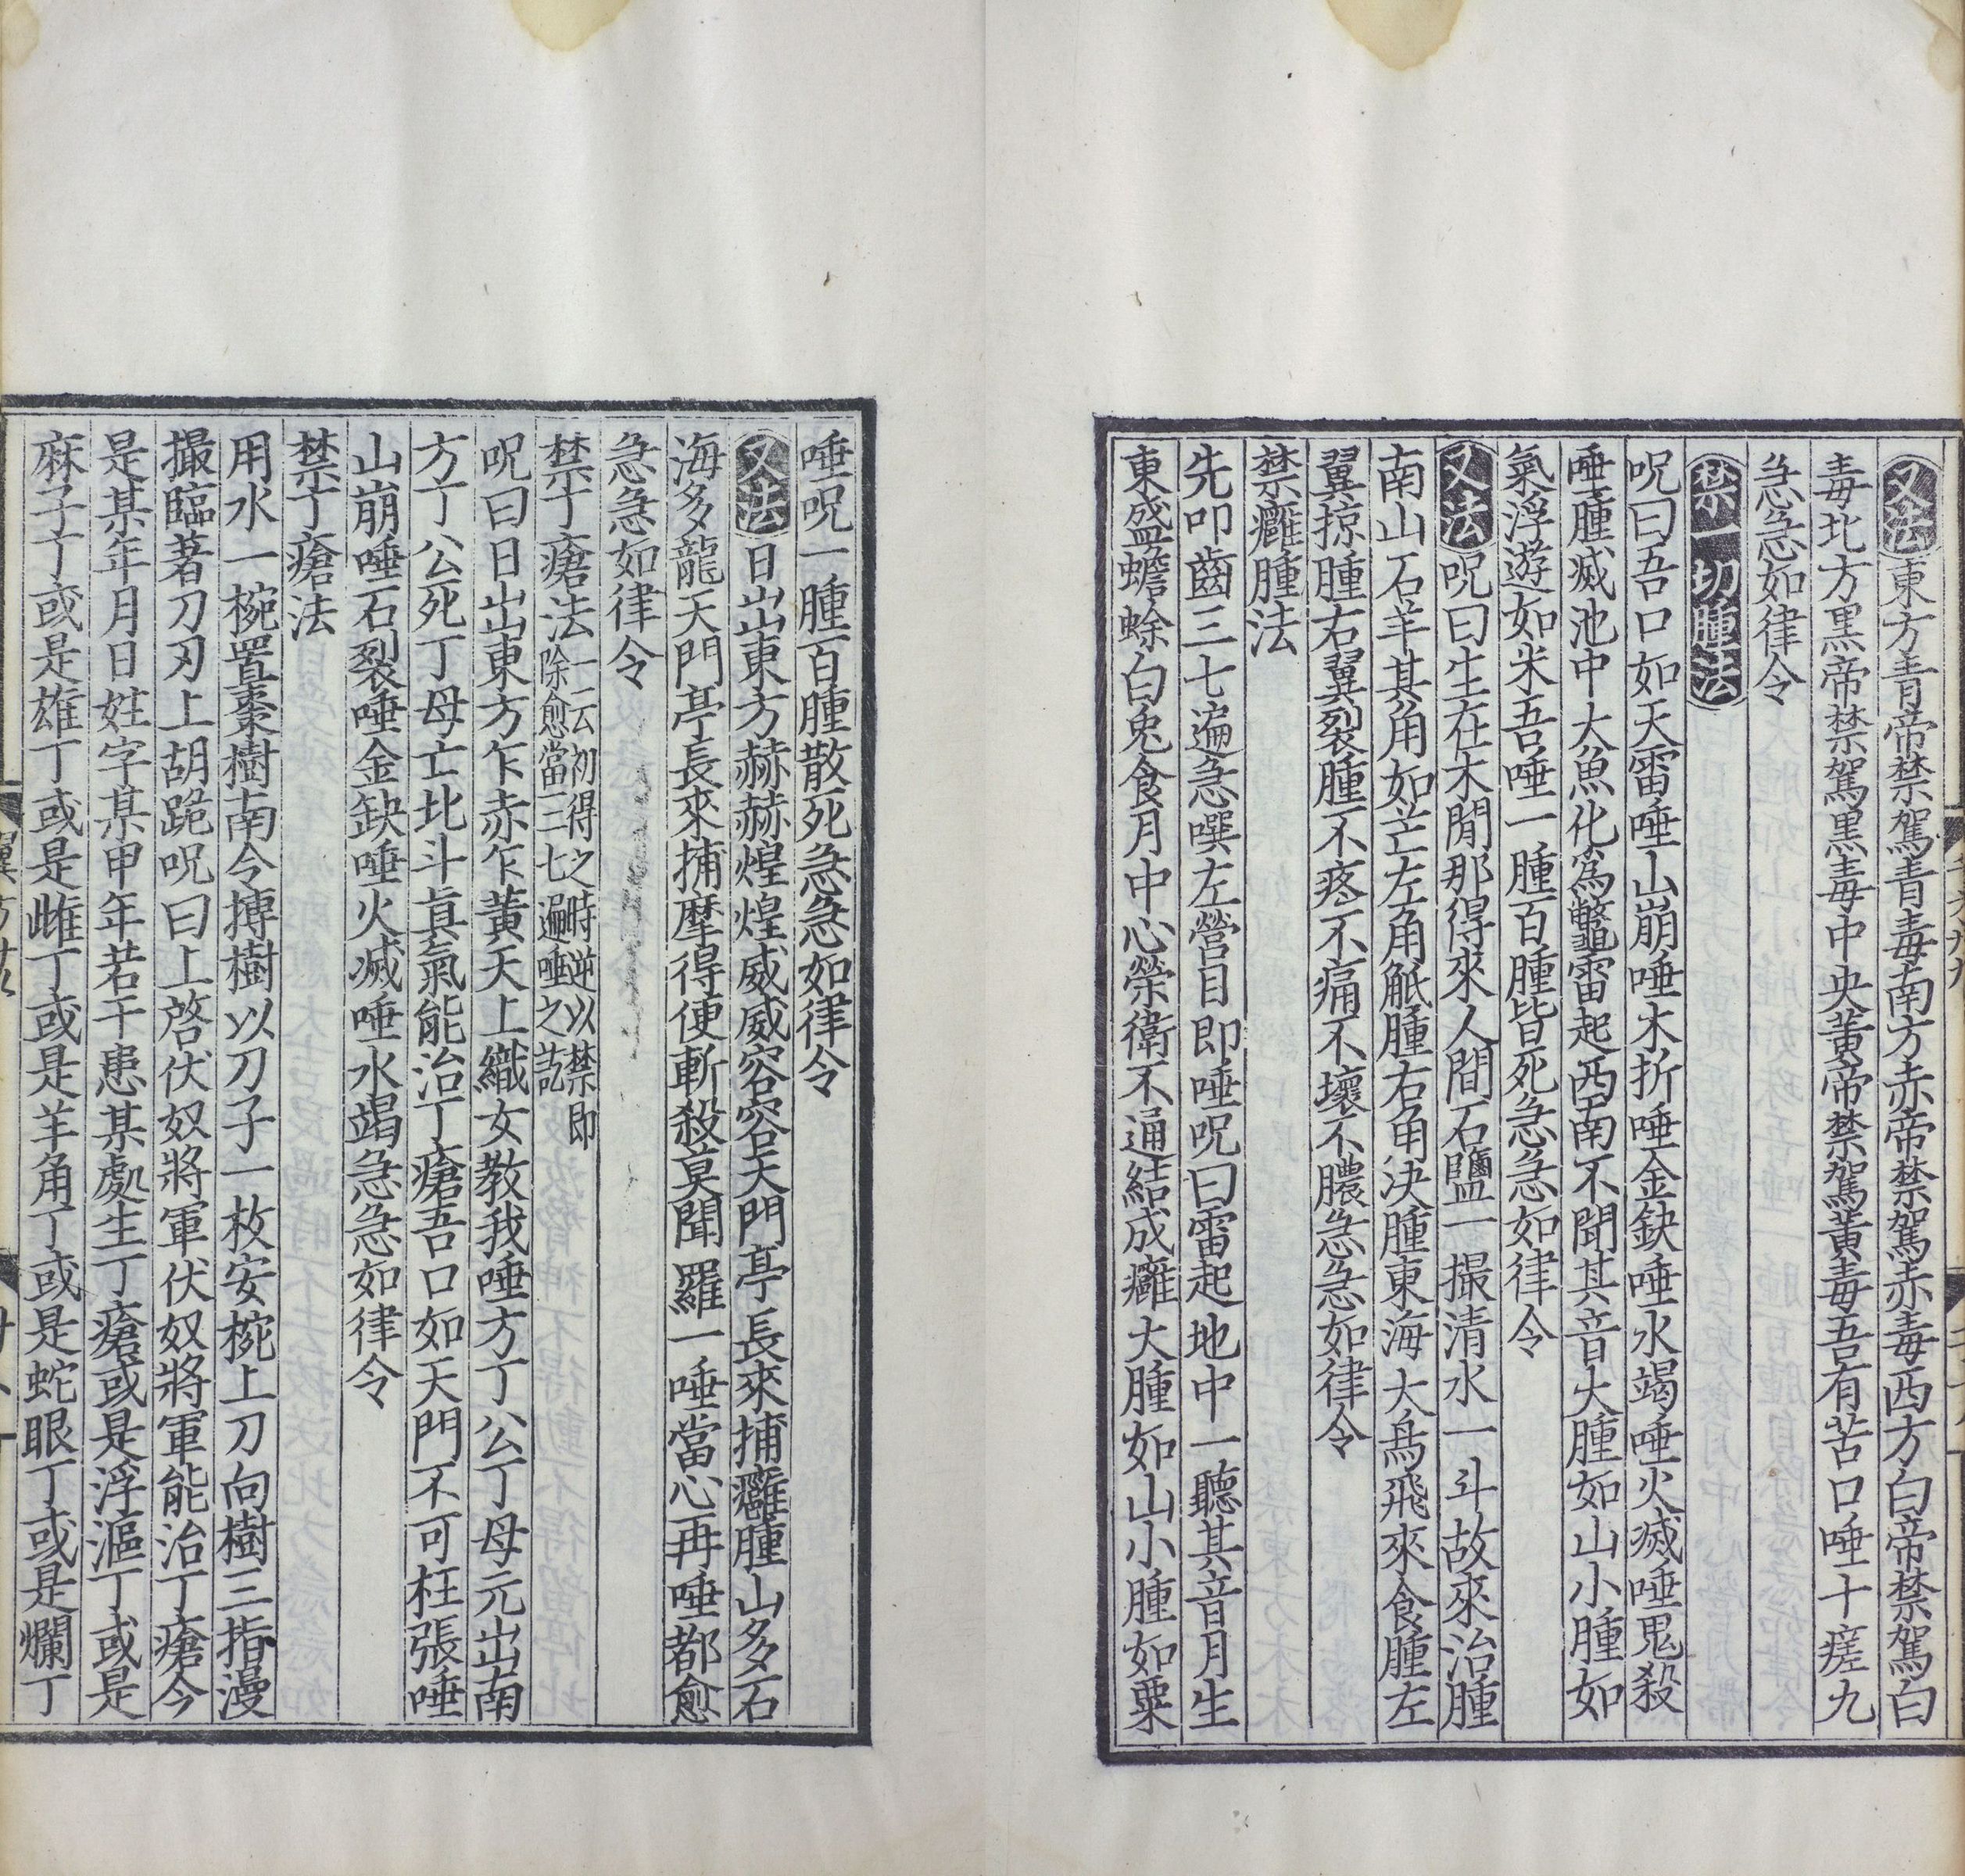 又法東方青帝禁駕青毒南方赤帝禁駕赤毒西方白帝禁駕白
毒北方黑帝禁駕黑毒中央黃帝禁駕黃毒吾有苦口唾十瘥九
急急如律令
禁一切腫法
呪曰吾口如天雷唾山崩唾木折唾金鈌唾水竭唾火滅唾鬼殺
唾腫滅池中大魚化爲鼈雷起西南不聞其音大腫如山小腫如
氣浮遊如米吾唾一腫百腫皆死急急如律令
又法呪曰生在木閒那得來人間石鹽一撮清水一斗故來治腫
南山石羊其角如芒左角觝腫右角決腫東海大鳥飛來食腫左
翼掠腫右翼裂腫不疼不痛不壞不膿急急如律令
禁癰腫法
先叩齒三七遍急噀左營目即唾呪曰雷起地中一聽其音月生
東盛蟾蜍白兔食月中心榮衛不通結成癰大腫如山小腫如粟
唾呪一腫百腫散死急急如律令
又法日出東方赫赫煌煌威威容容天門亭長來捕癰腫山多石
海多龍天門亭長來捕摩得便斬殺莫聞羅一唾當心再唾都愈
急急如律令
禁丁瘡法一云初得之時逆以禁即
除愈當三七遍唾之訖
呪曰日出東方乍赤乍黃天上織女教我唾方丁公丁母元出南
方丁公死丁母亡北斗眞氣能治丁瘡吾口如天門不可枉張唾
山崩唾石裂唾金缺唾火滅唾水竭急急如律令
禁丁瘡法
用水一椀置棗樹南令搏樹以刀子一枚安椀上刀向樹三指漫
撮臨著刀刃上胡跪呪曰上啓伏奴將軍伏奴將軍能治丁瘡今
是某年月日姓字某甲年若干患某處生丁瘡或是浮漚丁或是
麻子丁或是雄丁或是雌丁或是羊角丁或是蛇眼丁或是爛丁